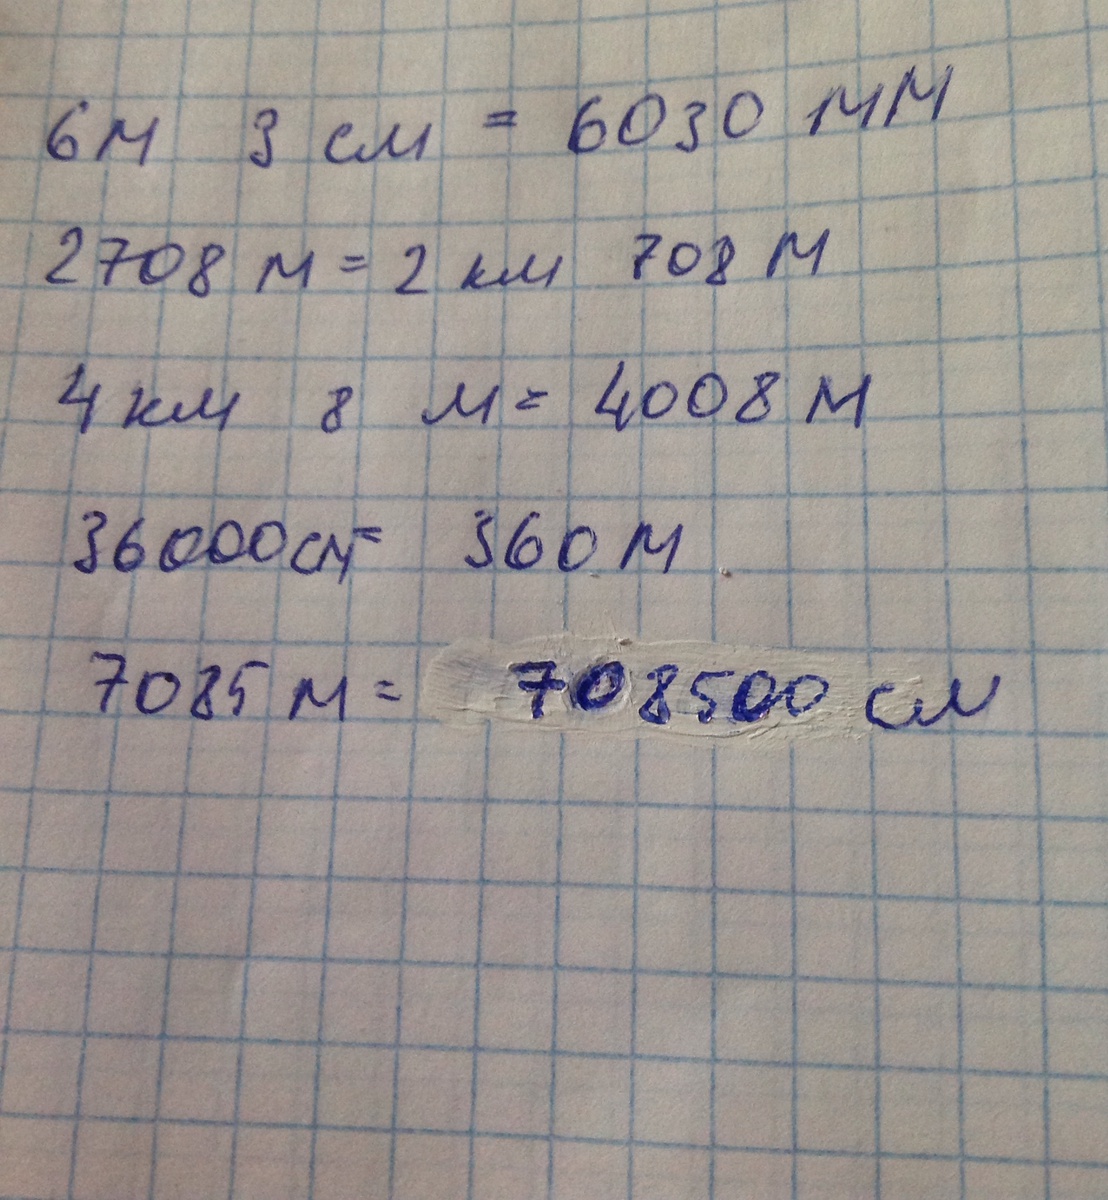 6м 3 см = 6030 мм
2708 м = 2 км 708 м
4 км 8 м = 4008 м
36000см = 360 м
7085 м = 708500 см